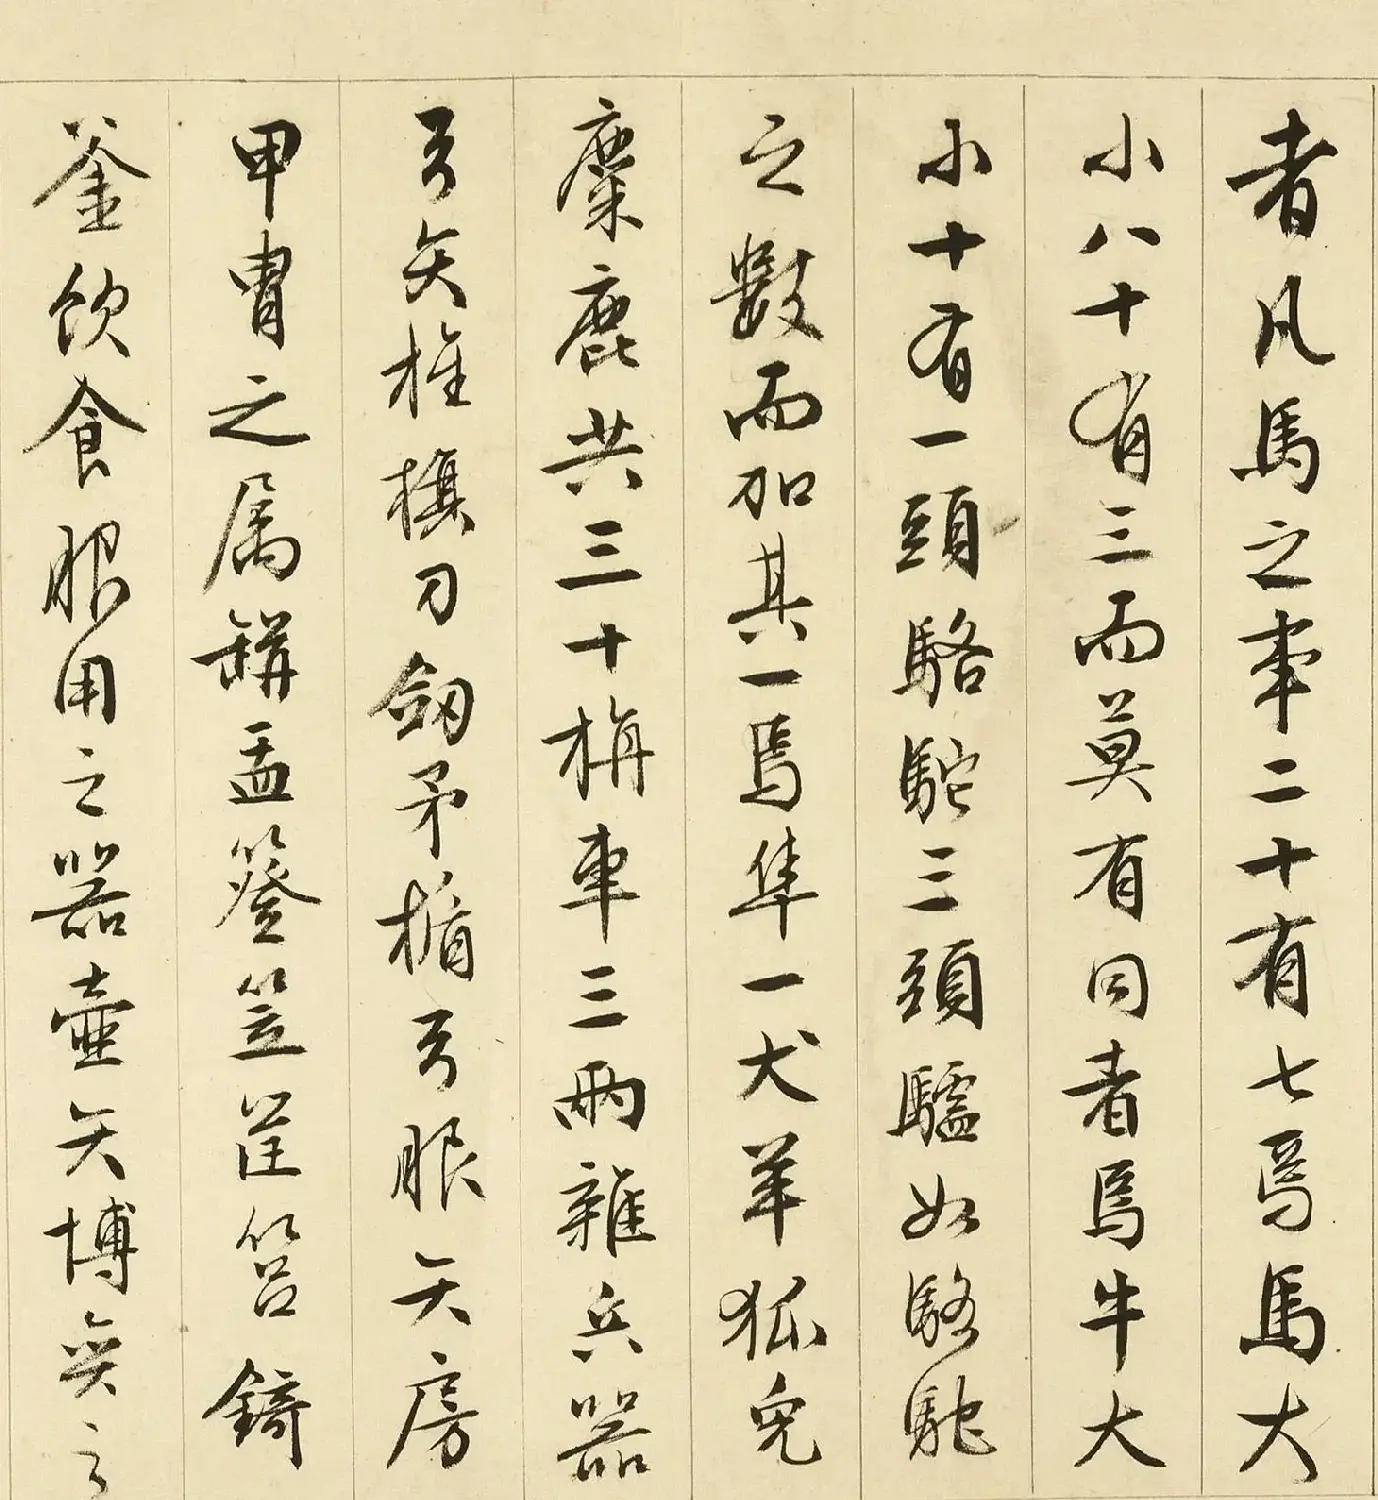 者凡馬之事二十有七焉馬大
小八十有三而莫有同者焉牛大
小十有一頭駱駝三頭驢如駱駝
之數而加其一焉隼一犬羊狐兔
麋鹿共三十旃車三兩雜兵器
弓矢旌旗刀劒矛楯弓服矢房
甲胄之属缾盂簦笠筐筥錡
釜飲食服用之器壷矢博奕之